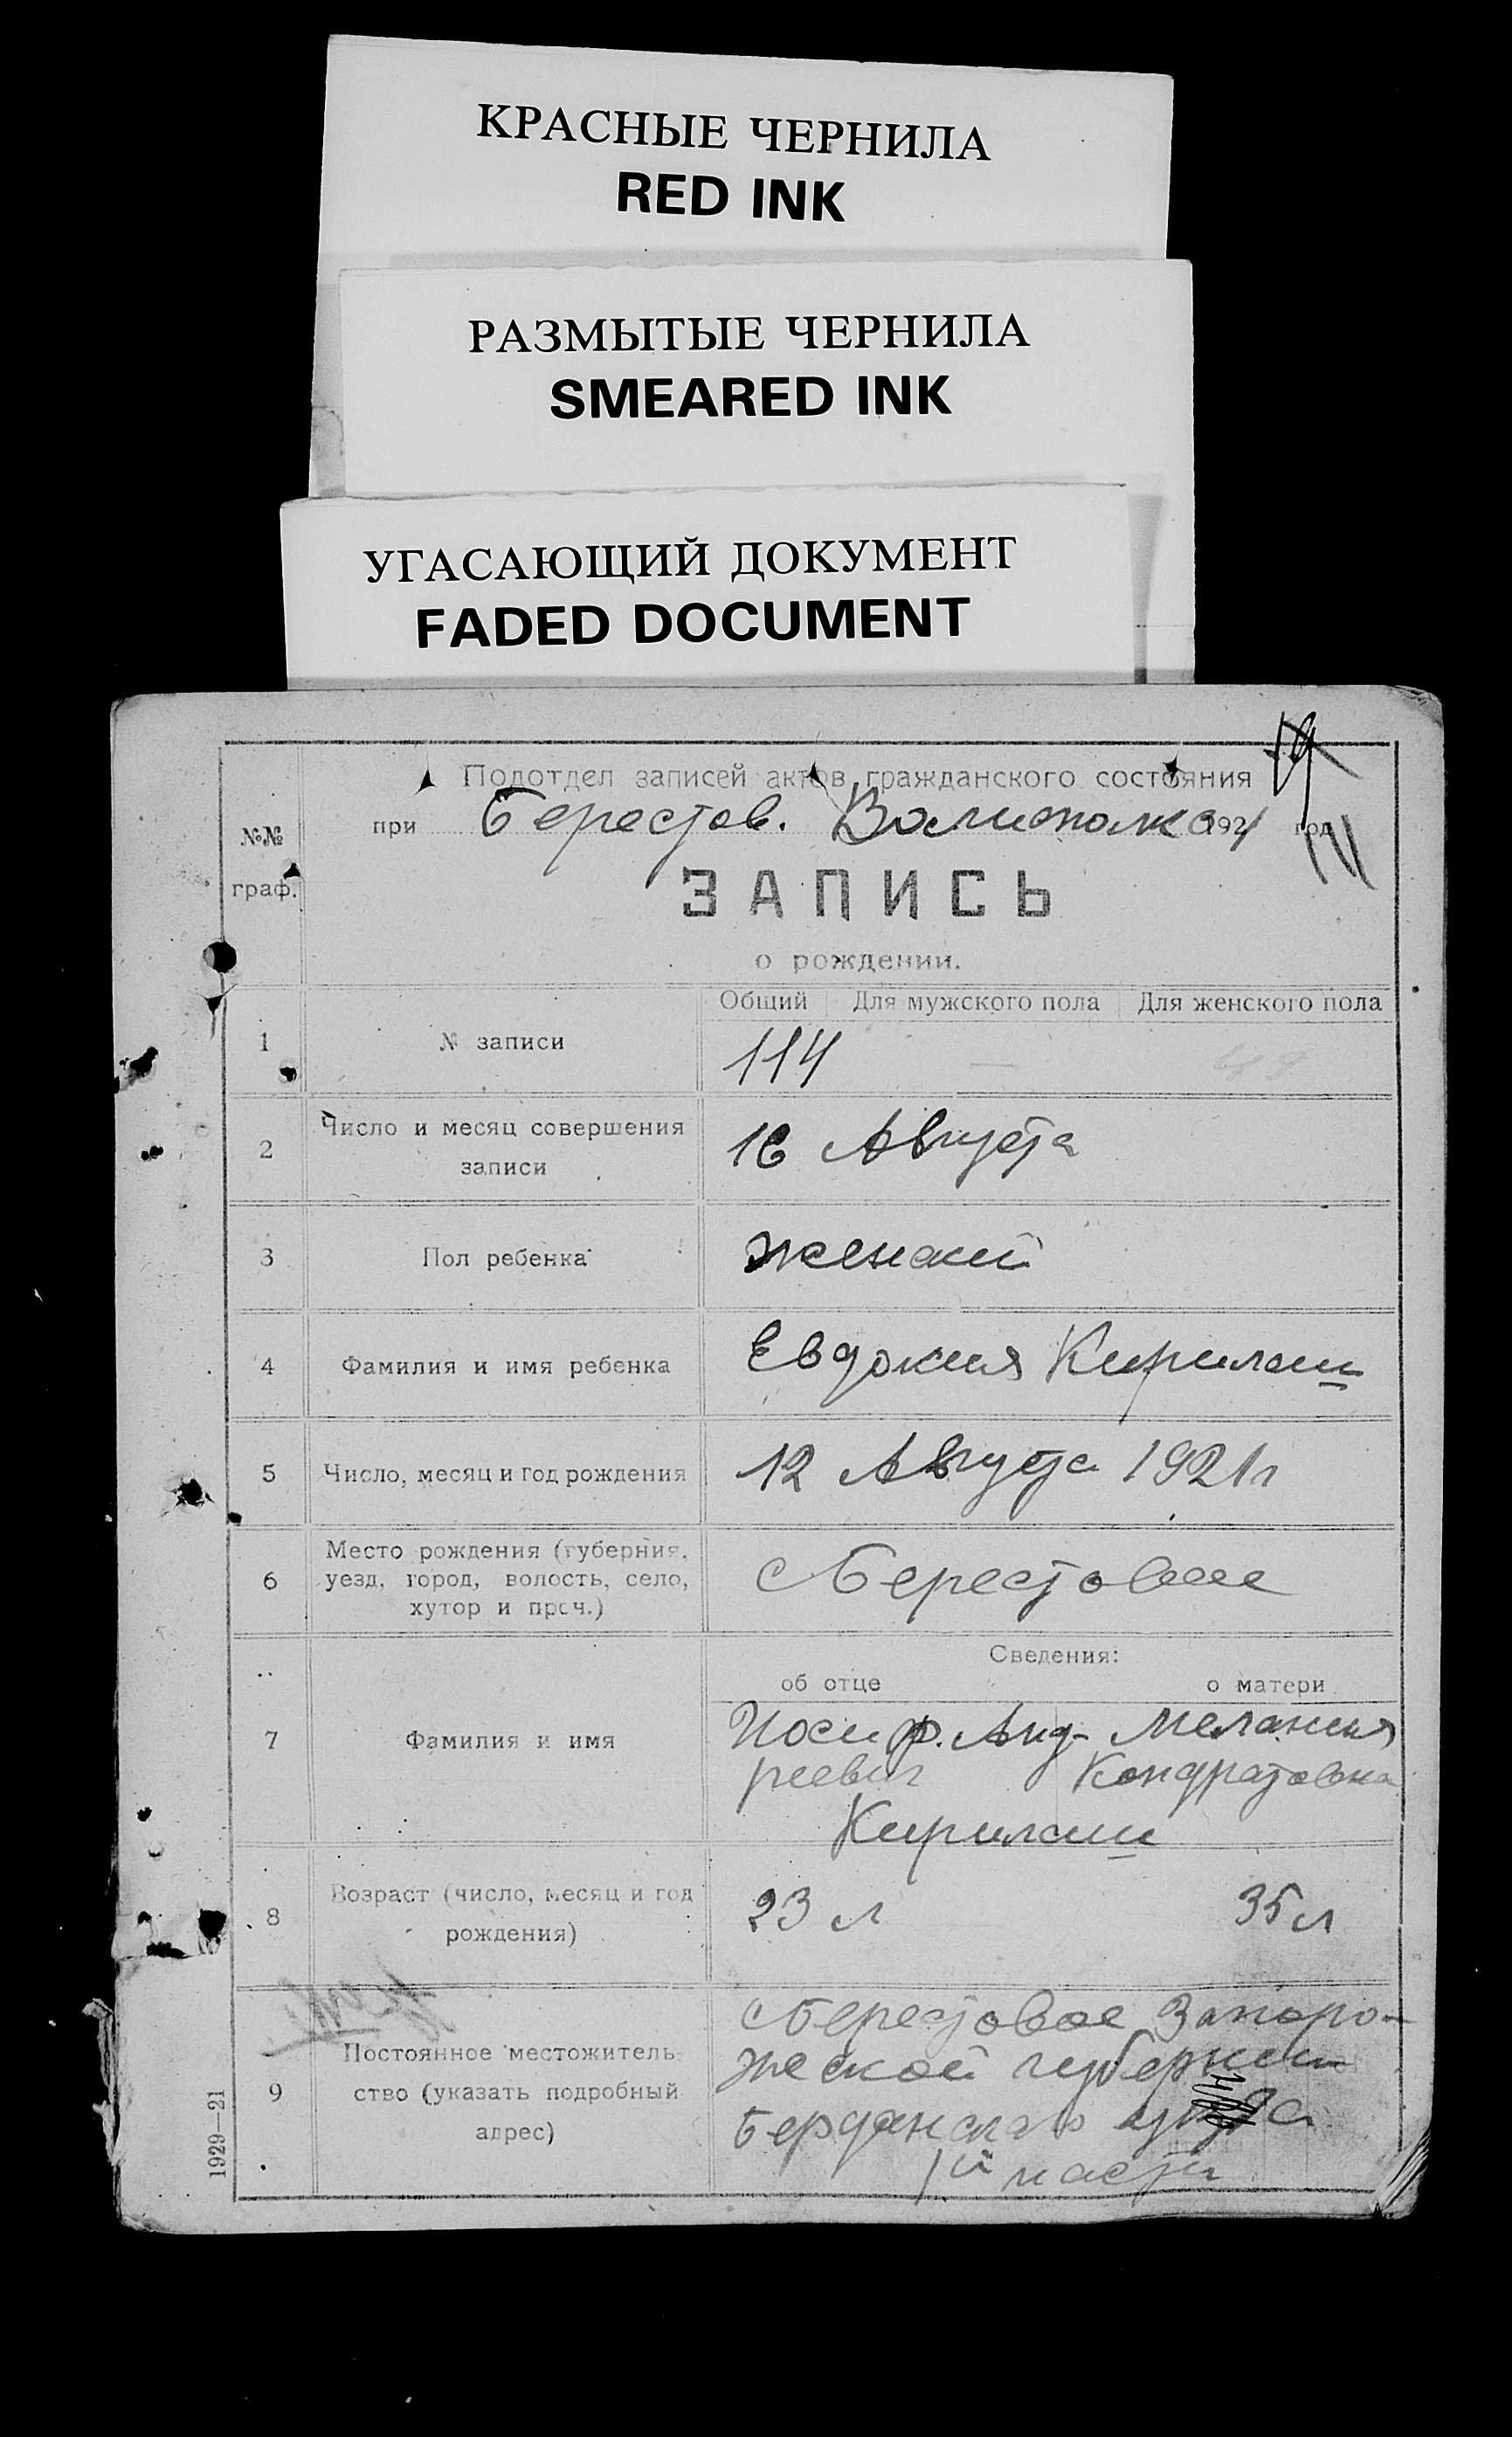 КРАСНЫЕ ЧЕРНИЛА
RED INK
РАЗМЫТЫЕ ЧЕРНИЛА
SMEARED INK
УГАСАЮЩИЙ ДОКУМЕНТ
FADED DOCUMENT
Подотдел записей актов гражданского состояния
при Берестов. Волисполко 1921 год
№№
граф.
ЗАПИСЬ
о рождении.
Общий Для мужского пола Для женского пола
1 № записи 114 —
2 Число и месяц совершения
записи
16 Августа
3 Пол ребенка женский
4 Фамилия и имя ребенка Евдокия Кирилаш
5 Число, месяц и год рождения 12 Августа 1921 г
6 Место рождения (губерния,
уезд, город, волость, село,
хутор и проч.)
с Берестовое
Сведения:
об отце о матери
7 Фамилия и имя
Иосиф. Анд- Мелания
реевич Кондратовна
Кирилаш
8 Возраст (число, месяц и год
рождения)
23 л 35 л
9 Постоянное местожитель-
ство (указать подробный
адрес)
с Берестовое Запоро-
жской губернии
Бердянского
1й части
1929—21